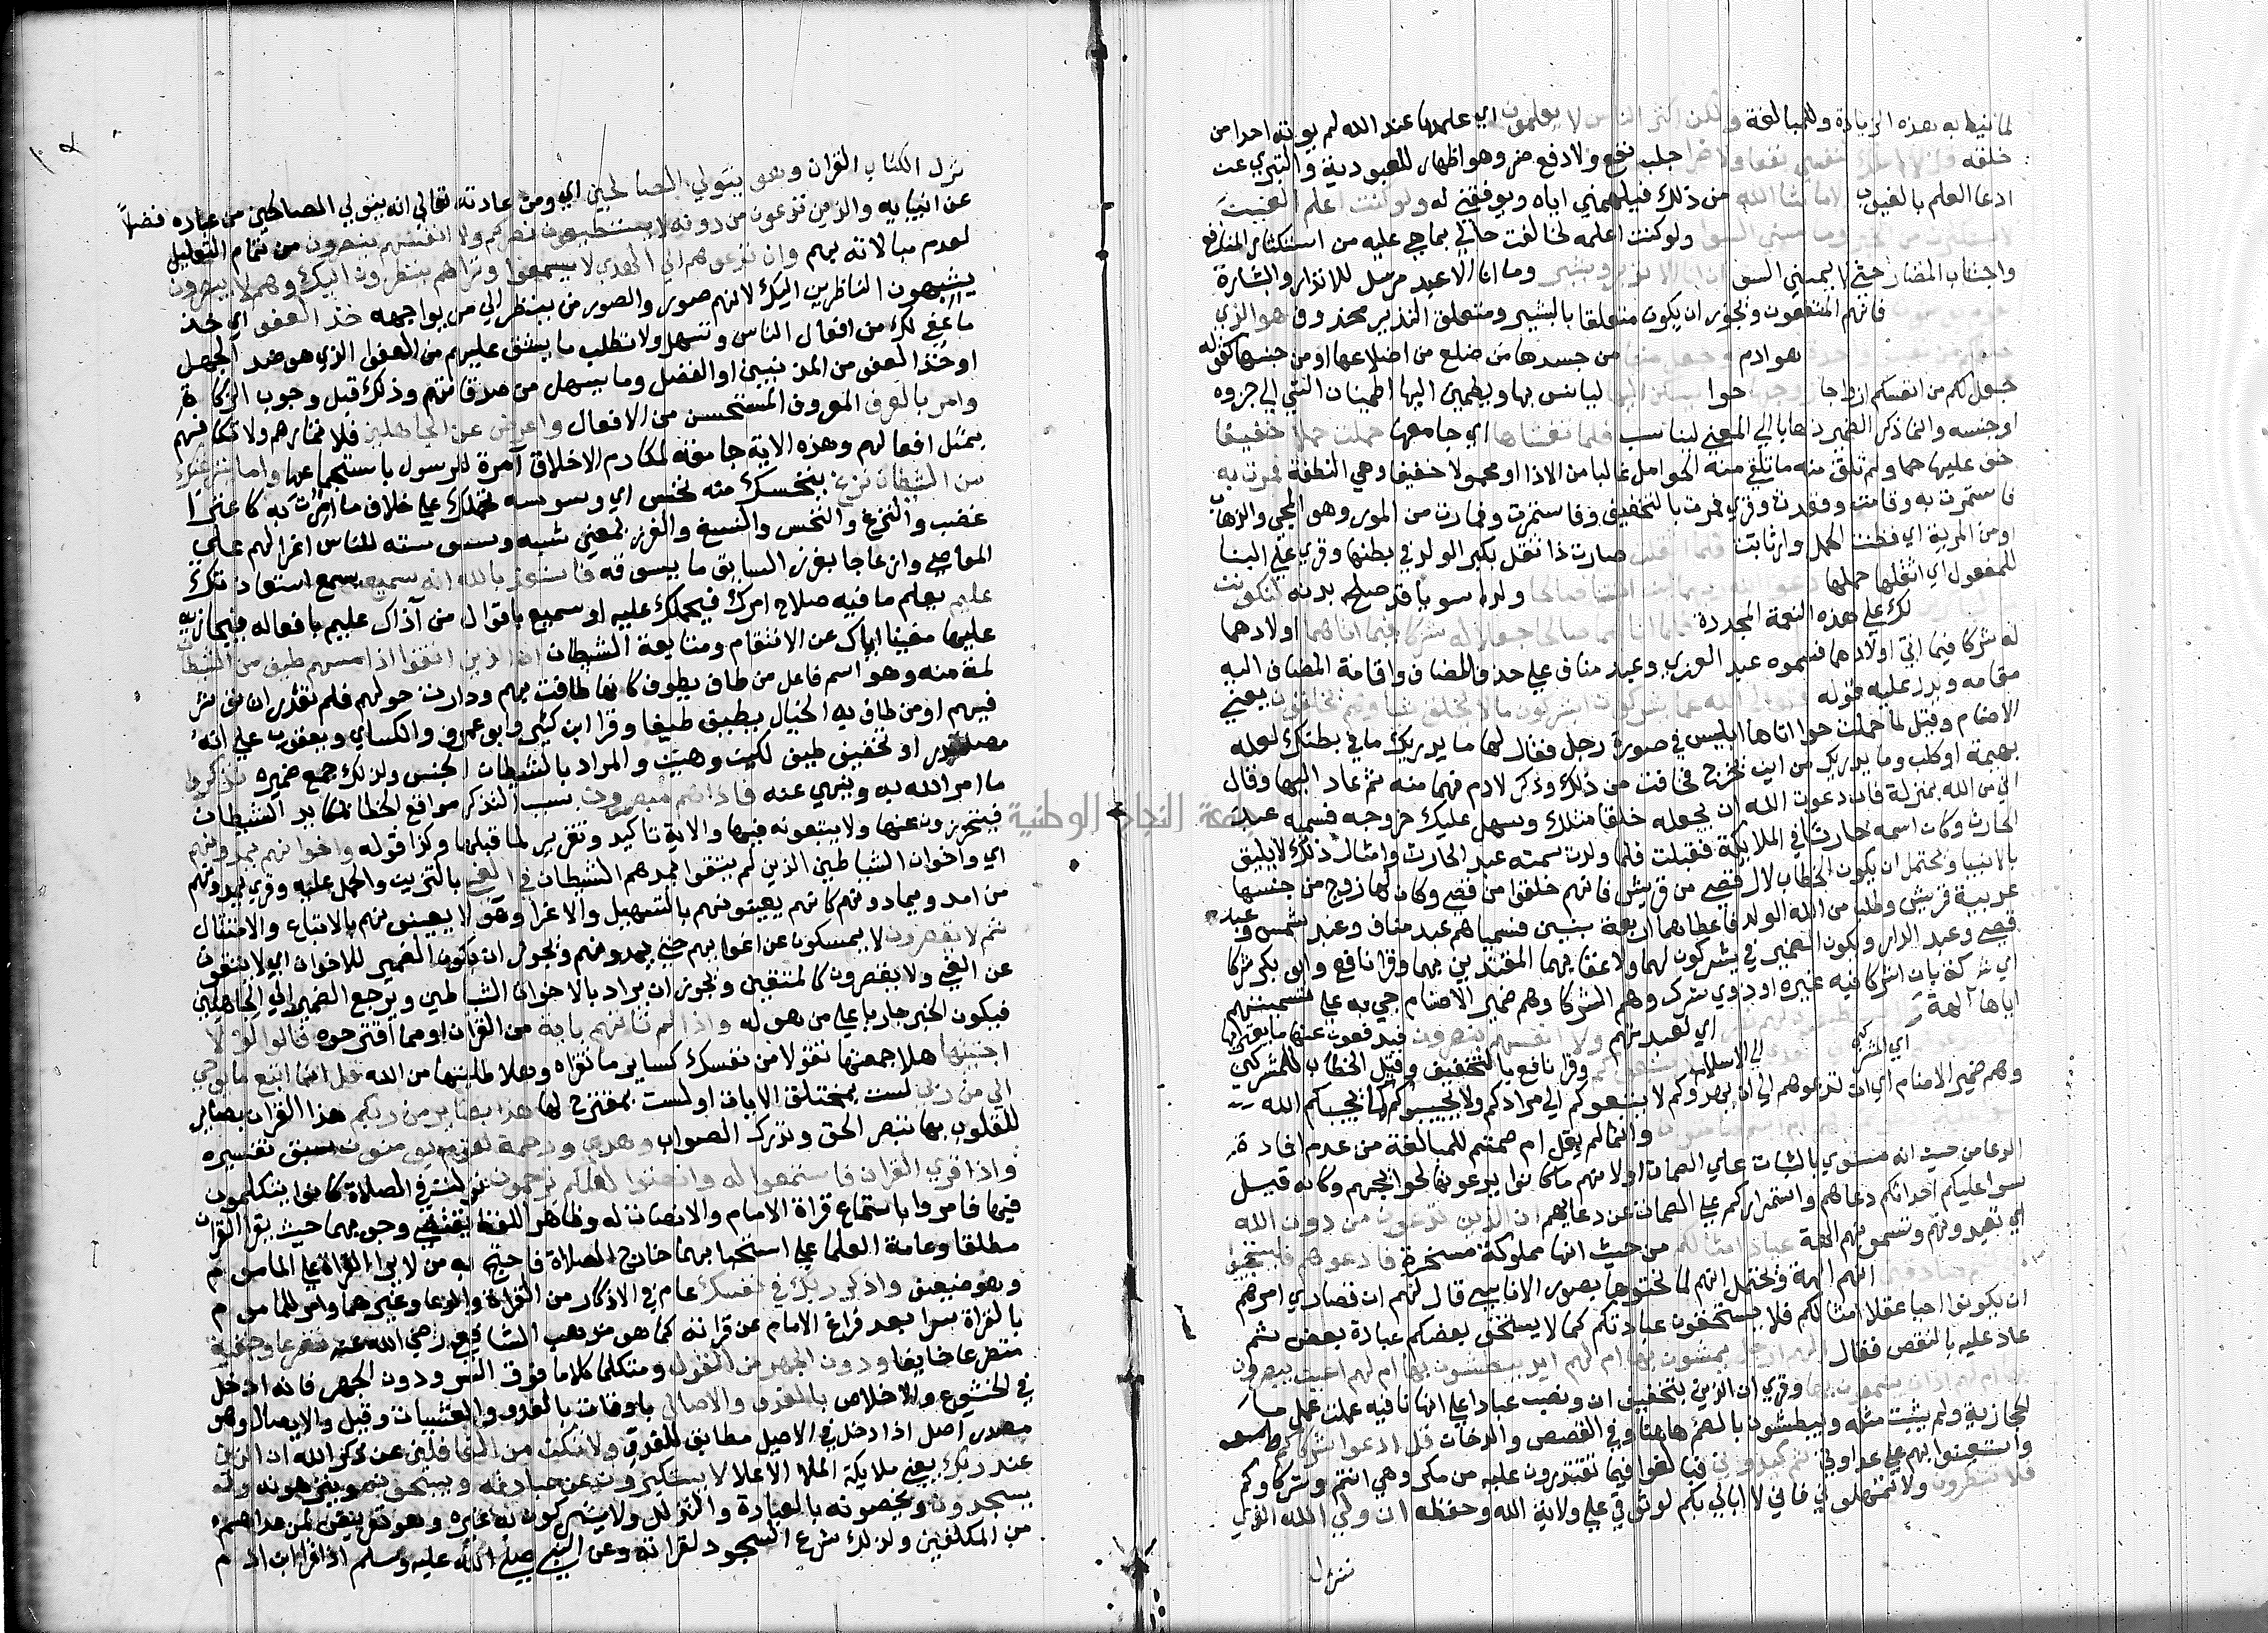 لما نيط به هذه الزيادة وللمبالغة ولكن اكثر الناس لا يعلمون اي علمها عند الله لم يوته احدا من
خلقه جلب نفع ولا دفع ضر وهو اظهار للعبودية والتبري عن
ادعا العلم بالغيوب الا ما شا الله من ذلك فيلهمني اياه ويوفقني له ولو كنت اعلم الغيب
ولو كنت اعلمه لخالفت حالي بما هي عليه من استكثار المنافع
واجتناب المضار حتى لا يمسني السو وما انا الا عبد مرسل للانذار والبشارة
فانهم المنتفعون ويجوز ان يكون متعلقا بالبشير ومتعلق النذير محذوف هو الذي
هو ادم من جسدها من ضلع من اضلاعها او من جنسها كقوله
جعل لكم من انفسكم ازواجا حوا ليانس بها ويطمين اليها اطمينان الشي الى جزوه
او جنسه وانما ذكر الضمير ذهابا الى المعنى ليناسب فلما تغشاها اي جامعها حملت حملا خفيفا
خف عليها حملها ولم تلق منه ما تلقى منه الحوامل غالبا من الاذا او محمولا خفيفا وهي النطفة فمرت به
فاستمرت به وقامت وقعدت وقري فمرت بالتخفيف وفاستمرت وفمارت من المور وهو المجي والذهاب
او من المرية اي فظنت الحمل وارتابت فلما اثقلت صارت ذا ثقل بكبر الولد في بطنها وقري على البنا
للمفعول اي اثقلها حملها ولدا سويا قد صلح بدنه لنكونن
لك على هذه النعمة المجددة فلما اتاهما صالحا جعلا له شركا فيما اتاهما اولادهما
له شركا فيما اتى اولادهما فسموه عبد العزي وعبد مناف على حذف المضاف واقامة المضاف اليه
مقامه ويدل عليه قوله فتعالى الله عما يشركون ايشركون ما لا يخلق شيا وهم يخلقون يعني
الاصنام وقيل لما حملت حوا اتاها ابليس في صورة رجل فقال لها ما يدريك ما في بطنك لعله
بهيمة او كلب وما يدريك من اين يخرج فخافت من ذلك وذكرت لادم فهما منه ثم عاد اليها وقال
اني من الله بمنزلة فان دعوت الله ان يجعله خلقا مثلك ويسهل عليك خروجه فسميه عبد
الحارث وكان اسمه حارثا في الملايكة فقبلت فلما ولدت سمته عبد الحارث وامثال ذلك لا يليق
بالانبيا ويحتمل ان يكون الخطاب لال قصي من قريش فانهم خلقوا من قصي وكان لها زوج من جنسها
عربية قريش وطلبا من الله الولد فاعطاهما اربعة بنين فسمياهم عبد مناف وعبد شمس وعبد
قصي وعبد الدار ويكون الضمير في يشركون لهما ولاعقابهما المقتدين بهما وقرا نافع وابو بكر شركا
اي شركة بان اشركا فيه غيره او ذوي شرك وهم الشركا وهم ضمير الاصنام جي به على تسميتهم
اياها آلهة اي لعبدتهم ولا انفسهم ينصرون فيدفعون عنها ما يعتريها
اي المشركين الى الاسلام وقرا نافع بالتخفيف وقيل الخطاب للمشركين
وهم ضمير الاصنام اي ان تدعوهم الى ان يهدوكم لا يتبعوكم الى مرادكم ولا يجيبوكم كما يجيبكم الله
وانما لم يقل ام صمتم للمبالغة من عدم افادة
الدعا من حيث انه مسوي بالثبات على الصمات او لانهم ما كانوا يدعونها لحوايجهم وكانه قيل
سوا عليكم احداثكم دعاهم واستمراركم على الصمات عن دعايهم ان الذين تدعون من دون الله
اي تعبدونهم وتسمونهم الهة عباد امثالكم من حيث انها مملوكة مسخرة فادعوهم
انهم الهة ويحتمل انهم لما نحتوها بصور الاناسي قال لهم ان قصارى امرهم
ان يكونوا احيا عقلا امثالكم فلا يستحقون عبادتكم كما لا يستحق بعضكم عبادة بعض ثم
عاد عليه بالنقض فقال الهم ارجل يمشون بها ام لهم ايد يبطشون بها ام لهم اعين يبصرون
بها ام لهم اذان يسمعون بها وقري ان الذين بتخفيف ان ونصب عبادا على انها نافية عملت عمل ما
الحجازية ولم يثبت مثله ويبطشون بالضم هاهنا وفي القصص والدخان قل ادعوا شركاكم
واستعينوا بهم على عداوتي ثم كيدوني فبالغوا فيما تقتدرون عليه من مكروهي انتم وشركاوكم
فلا تنظرون ولا تمهلوني فاني لا ابالي بكم لوثوقي على ولاية الله وحفظه ان ولي الله الذي
نزل
نزل الكتاب القران وهو يتولى الصالحين اي ومن عادته تعالى انه يتولى الصالحين من عباده فضلا
عن انبيايه والذين تدعون من دونه لا يستطيعون نصركم ولا انفسهم ينصرون من تمام التعليل
لعدم مبالاته بهم وان تدعوهم الى الهدى لا يسمعوا وتراهم ينظرون اليك وهم لا يبصرون
يشبهون الناظرين اليك لانهم صوروا بصورة من ينظر الى من يواجهه خذ العفو اي خذ
ما عفى لك من افعال الناس وتسهل ولا تطلب ما يشق عليهم من العفو الذي هو ضد الجهل
او خذ العفو من المذنبين او الفضل وما يسهل من صدقاتهم وذلك قبل وجوب الزكاة
وامر بالعرف المعروف المستحسن من الافعال واعرض عن الجاهلين فلا تمارهم ولا تكافهم
بمثل افعالهم وهذه الاية جامعة لمكارم الاخلاق آمرة للرسول باستجماعها واما ينزغنك
من الشيطان نزغ ينخسنك منه نخس اي وسوسة تحملك على خلاف ما امرت به كاعترا
غضب والنزغ والنخس والنسغ والغرز بمعنى شبه وسوسته للناس اغرا لهم على
المعاصي وازعاجا بغرز السايق ما يسوقه فاستعذ بالله انه سميع يسمع استعاذتك
عليم يعلم ما فيه صلاح امرك فيحملك عليه او سميع باقوال من آذاك عليم بافعاله فيجازيه
عليها مغنيا اياك عن الانتقام ومتابعة الشيطان ان الذين اتقوا اذا مسهم طيف من الشيطان
لمة منه وهو اسم فاعل من طاف يطوف كانها طافت بهم ودارت حولهم فلم تقدر ان توثر
فيهم او من طاف به الخيال يطيف طيفا وقرا ابن كثير وابو عمرو والكساي ويعقوب على انه
مصدر او تخفيف طيف كلين وهين والمراد بالشيطان الجنس ولذلك جمع ضميره تذكروا
ما امر الله به ونهى عنه فاذا هم مبصرون بسبب التذكر مواقع الخطا ومكايد الشيطان
فيتحرزون عنها ولا يتبعونه فيها والاية تاكيد وتقرير لما قبلها وكذا قوله واخوانهم يمدونهم
اي واخوان الشياطين الذين لم يتقوا يمدهم الشيطان في الغي بالتزيين والحمل عليه وقري يمدونهم
من امد ويمادونهم كانهم يعينونهم بالتسهيل والاغرا وهولا يعينونهم بالاتباع والامتثال
ثم لا يقصرون لا يمسكون عن اغوايهم حتى يمدونهم ويجوز ان يكون الضمير للاخوان اي لا يتقون
عن الغي ولا يقصرون كالمتقين ويجوز ان يراد بالاخوان الشياطين ويرجع الضمير الى الجاهلين
فيكون الخبر جاريا على من هو له واذا لم تاتهم باية من القران او مما اقترحوه قالوا لولا
اجتبيتها هلا جمعتها تقولا من نفسك كساير ما تقراه او هلا طلبتها من الله قل انما اتبع ما يوحى
الي من ربي لست بمختلق الايات او لست بمقترح لها هذا بصاير من ربكم هذا القران بصاير
للقلوب بها تبصر الحق وتدرك الصواب وهدى ورحمة لقوم يومنون سبق تفسيره
واذا قري القران فاستمعوا له وانصتوا لعلكم ترحمون نزلت في الصلاة كانوا يتكلمون
فيها فامروا باستماع قراة الامام والانصات له وظاهر اللفظ يقتضي وجوبهما حيث يقرا القران
مطلقا وعامة العلما على استحبابهما خارج الصلاة فاحتج به من لا يرا القراة على الماموم
وهو ضعيف واذكر ربك في نفسك عام في الاذكار من القراة والدعا وغيرهما وامر للماموم
بالقراة سرا بعد فراغ الامام عن قراته كما هو مذهب الشافعي رضي الله عنه تضرعا وخيفة
متضرعا خايفا ودون الجهر من القول ومتكلما كلاما فوق السر ودون الجهر فانه ادخل
في الخشوع والاخلاص بالغدو والاصال باوقات بالغدو والعشيات وقيل والايصال وهو
مصدر اصل اذا دخل في الاصيل مطابق للغدو ولا تكن من الغافلين عن ذكر الله ان الذين
عند ربك يعني ملايكة الملا الاعلا لا يستكبرون عن عبادته ويسبحونه وينزهونه وله
يسجدون ويخصونه بالعبادة والتذلل ولا يشركون به غيره وهو تعريض لمن عداهم
من المكلفين ولذلك شرع السجود لقراته وعن النبي صلى الله عليه وسلم اذا قرا ابن ادم